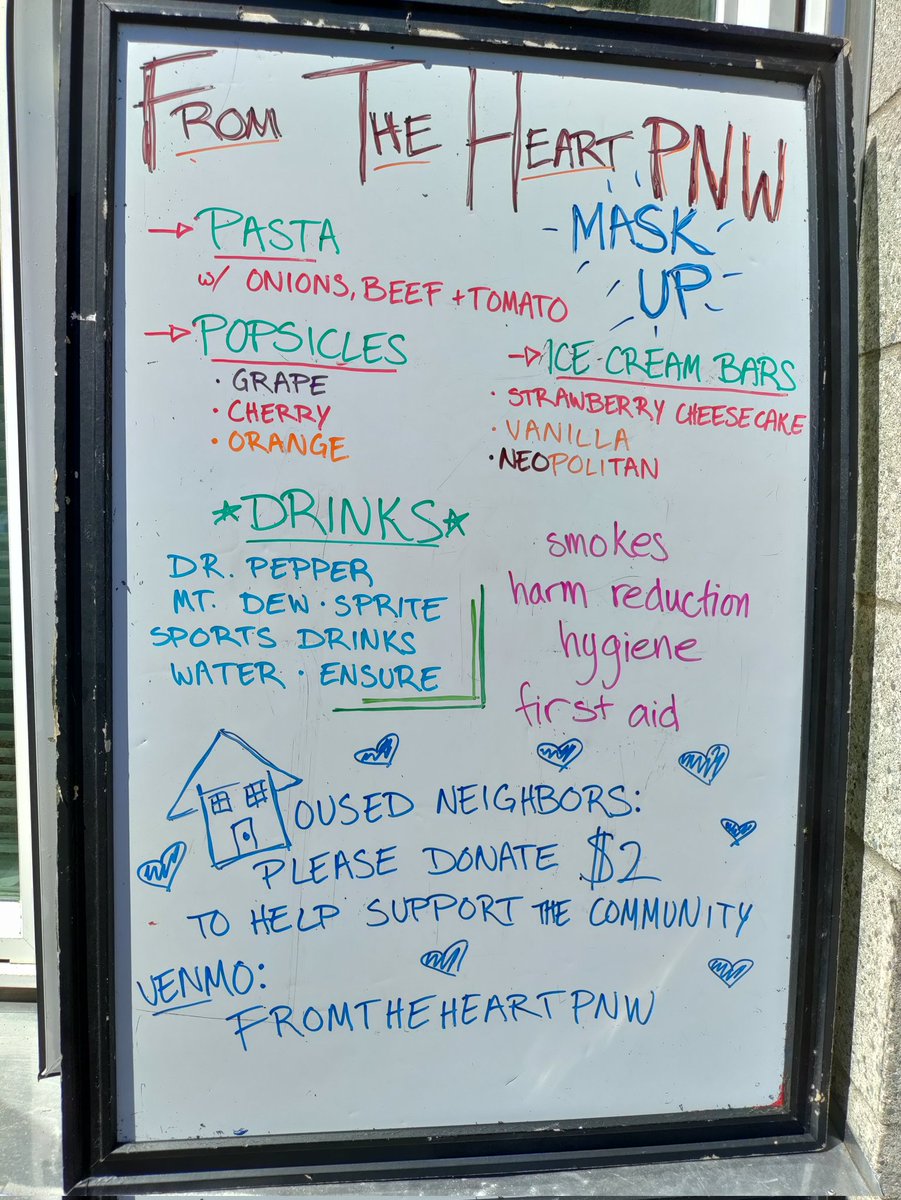 FROM THE HEART PNW
→ PASTA
w/ ONIONS, BEEF + TOMATO
- MASK
UP -
→ POPSICLES
· GRAPE
· CHERRY
· ORANGE
→ ICE CREAM BARS
· STRAWBERRY CHEESECAKE
· VANILLA
· NEOPOLITAN
*DRINKS*
DR. PEPPER
MT. DEW · SPRITE
SPORTS DRINKS
WATER · ENSURE
smokes
harm reduction
hygiene
first aid
OUSED NEIGHBORS:
PLEASE DONATE $2
TO HELP SUPPORT THE COMMUNITY
VENMO:
FROMTHEHEARTPNW